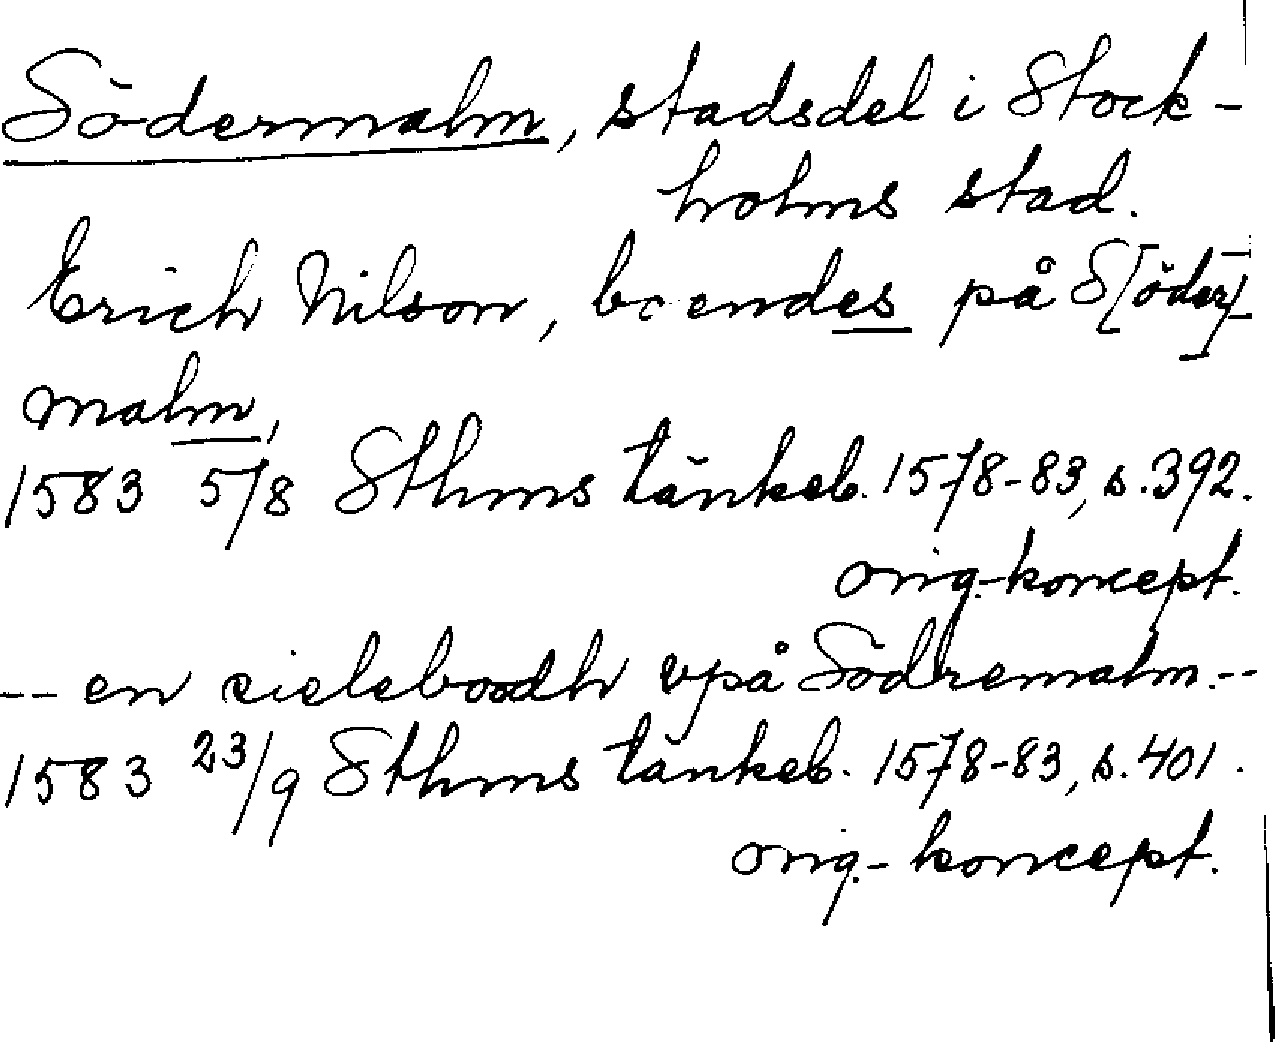 Södermalm, stadsdel i Stock-
holms stad.
Erich Nilson, boendes på S[öder]
malm,
1583 5/8 Sthms tänkeb. 1578-83, s. 392.
orig.-koncept.
-- en sieleboodh vpå Södremalm.--
1583 23/9 Sthms tänkeb. 1578-83, s. 401.
orig.-koncept.